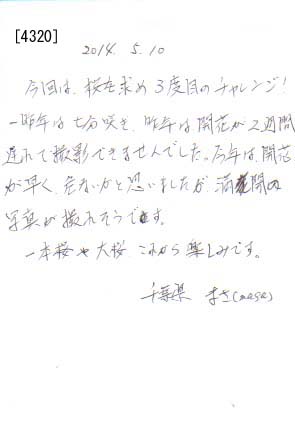 [4320]
2014. 5. 10
今回は、桜を求め3度目のチャレンジ!
一昨年は七分咲き、昨年は開花が2週間
遅れて撮影できませんでした。今年は、開花
が早く、危ないかと思いましたが満開の
写真が撮れそうです。
一本桜や大桜、これから楽しみです。
千葉県 まさ(masa)